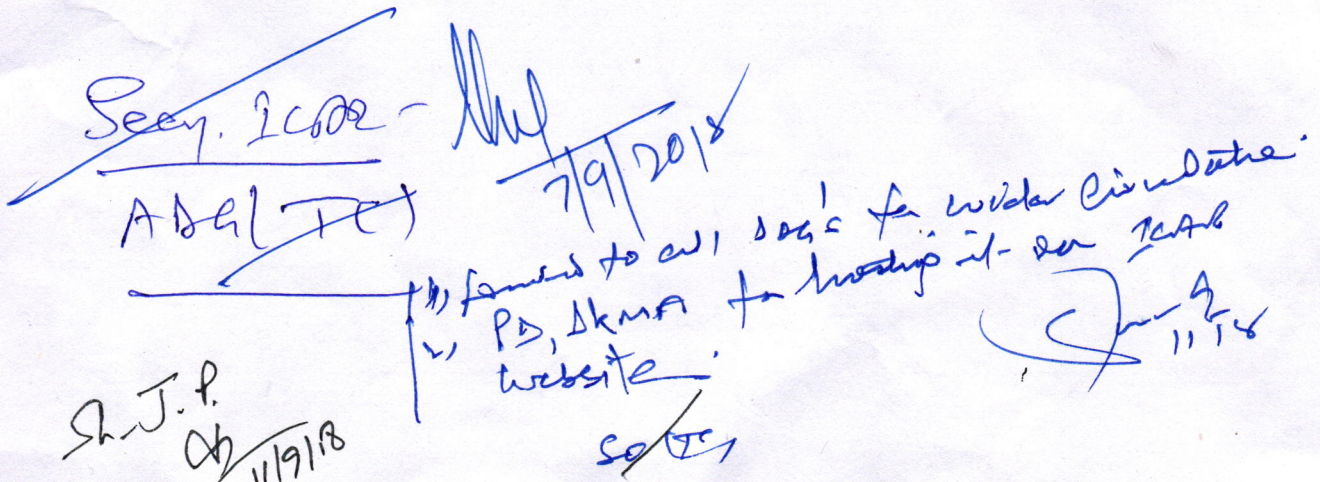 Secy. ICAR -
7/9/2018
ADG (IC)
1) forward to all DDG's for wider circulation.
2) PD, DKMA for hosting it on ICAR
website.
11/9/18
Sh. J. P.
11/9/18
SO (IC)